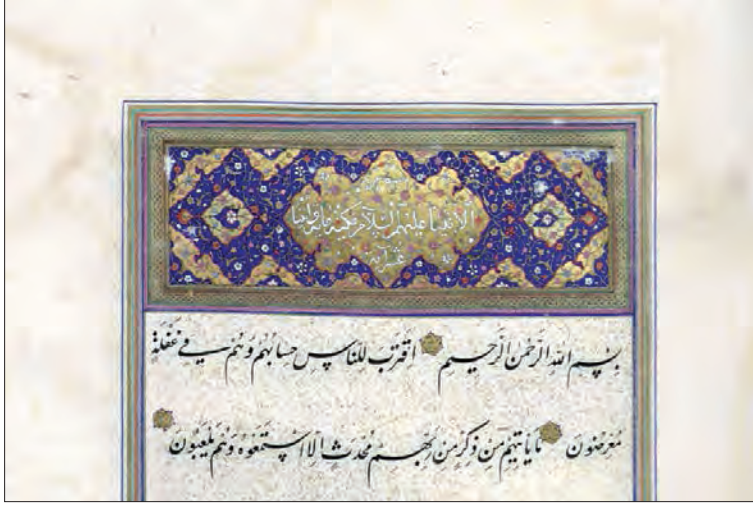 الانبیاء علیهم السلام مکیة مایة واثنا
عشر آیة
بِسْمِ اللّٰهِ الرَّحْمٰنِ الرَّحِيمِ اقْتَرَبَ لِلنَّاسِ حِسَابُهُمْ وَهُمْ فِي غَفْلَةٍ
مُعْرِضُونَ مَا يَأْتِيهِمْ مِنْ ذِكْرٍ مِنْ رَبِّهِمْ مُحْدَثٍ إِلَّا اسْتَمَعُوهُ وَهُمْ يَلْعَبُونَ